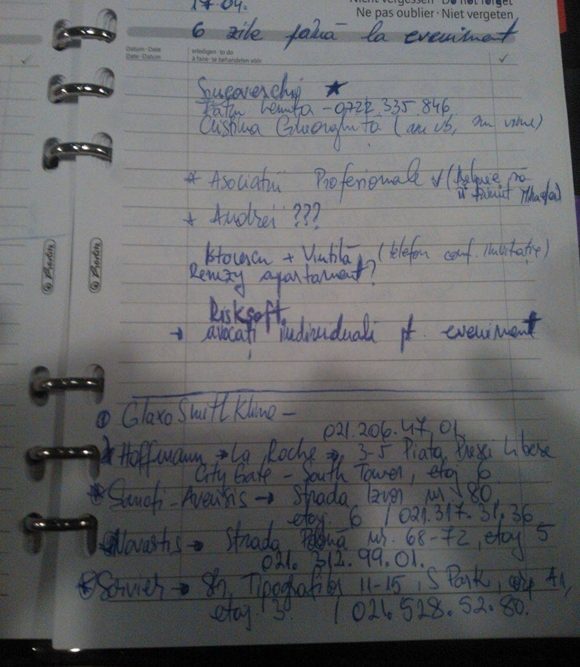 17 04.
Nicht vergessen · Do not forget
Ne pas oublier · Niet vergeten
6 zile până la eveniment
Datum · Date
Date · Datum
erledigen · to do
à faire · te behandelen vóór
0722.335.846
Cristina Gheorghiță (am vb,
* Asociații Profesionale
* Andrei ???
+ Vintilă (telefon conf. invitație)
apartament?
Risksoft
→ avocați individuali pt. eveniment
GlaxoSmithKline -
021.206.47.01
Hoffmann → La Roche → 3-5 Piața Presei Libere
City Gate - South Tower, etaj 6
Sanofi-Aventis → Strada Izvor nr 80
etaj 6 / 021.317.31.36
Novartis → Strada nr. 68-72, etaj 5
021. 312.99.01.
Servier → Str. Tipografilor 11-15, S Park, corp A1,
etaj 3. / 021.528.52.80.
Herlitz
Herlitz